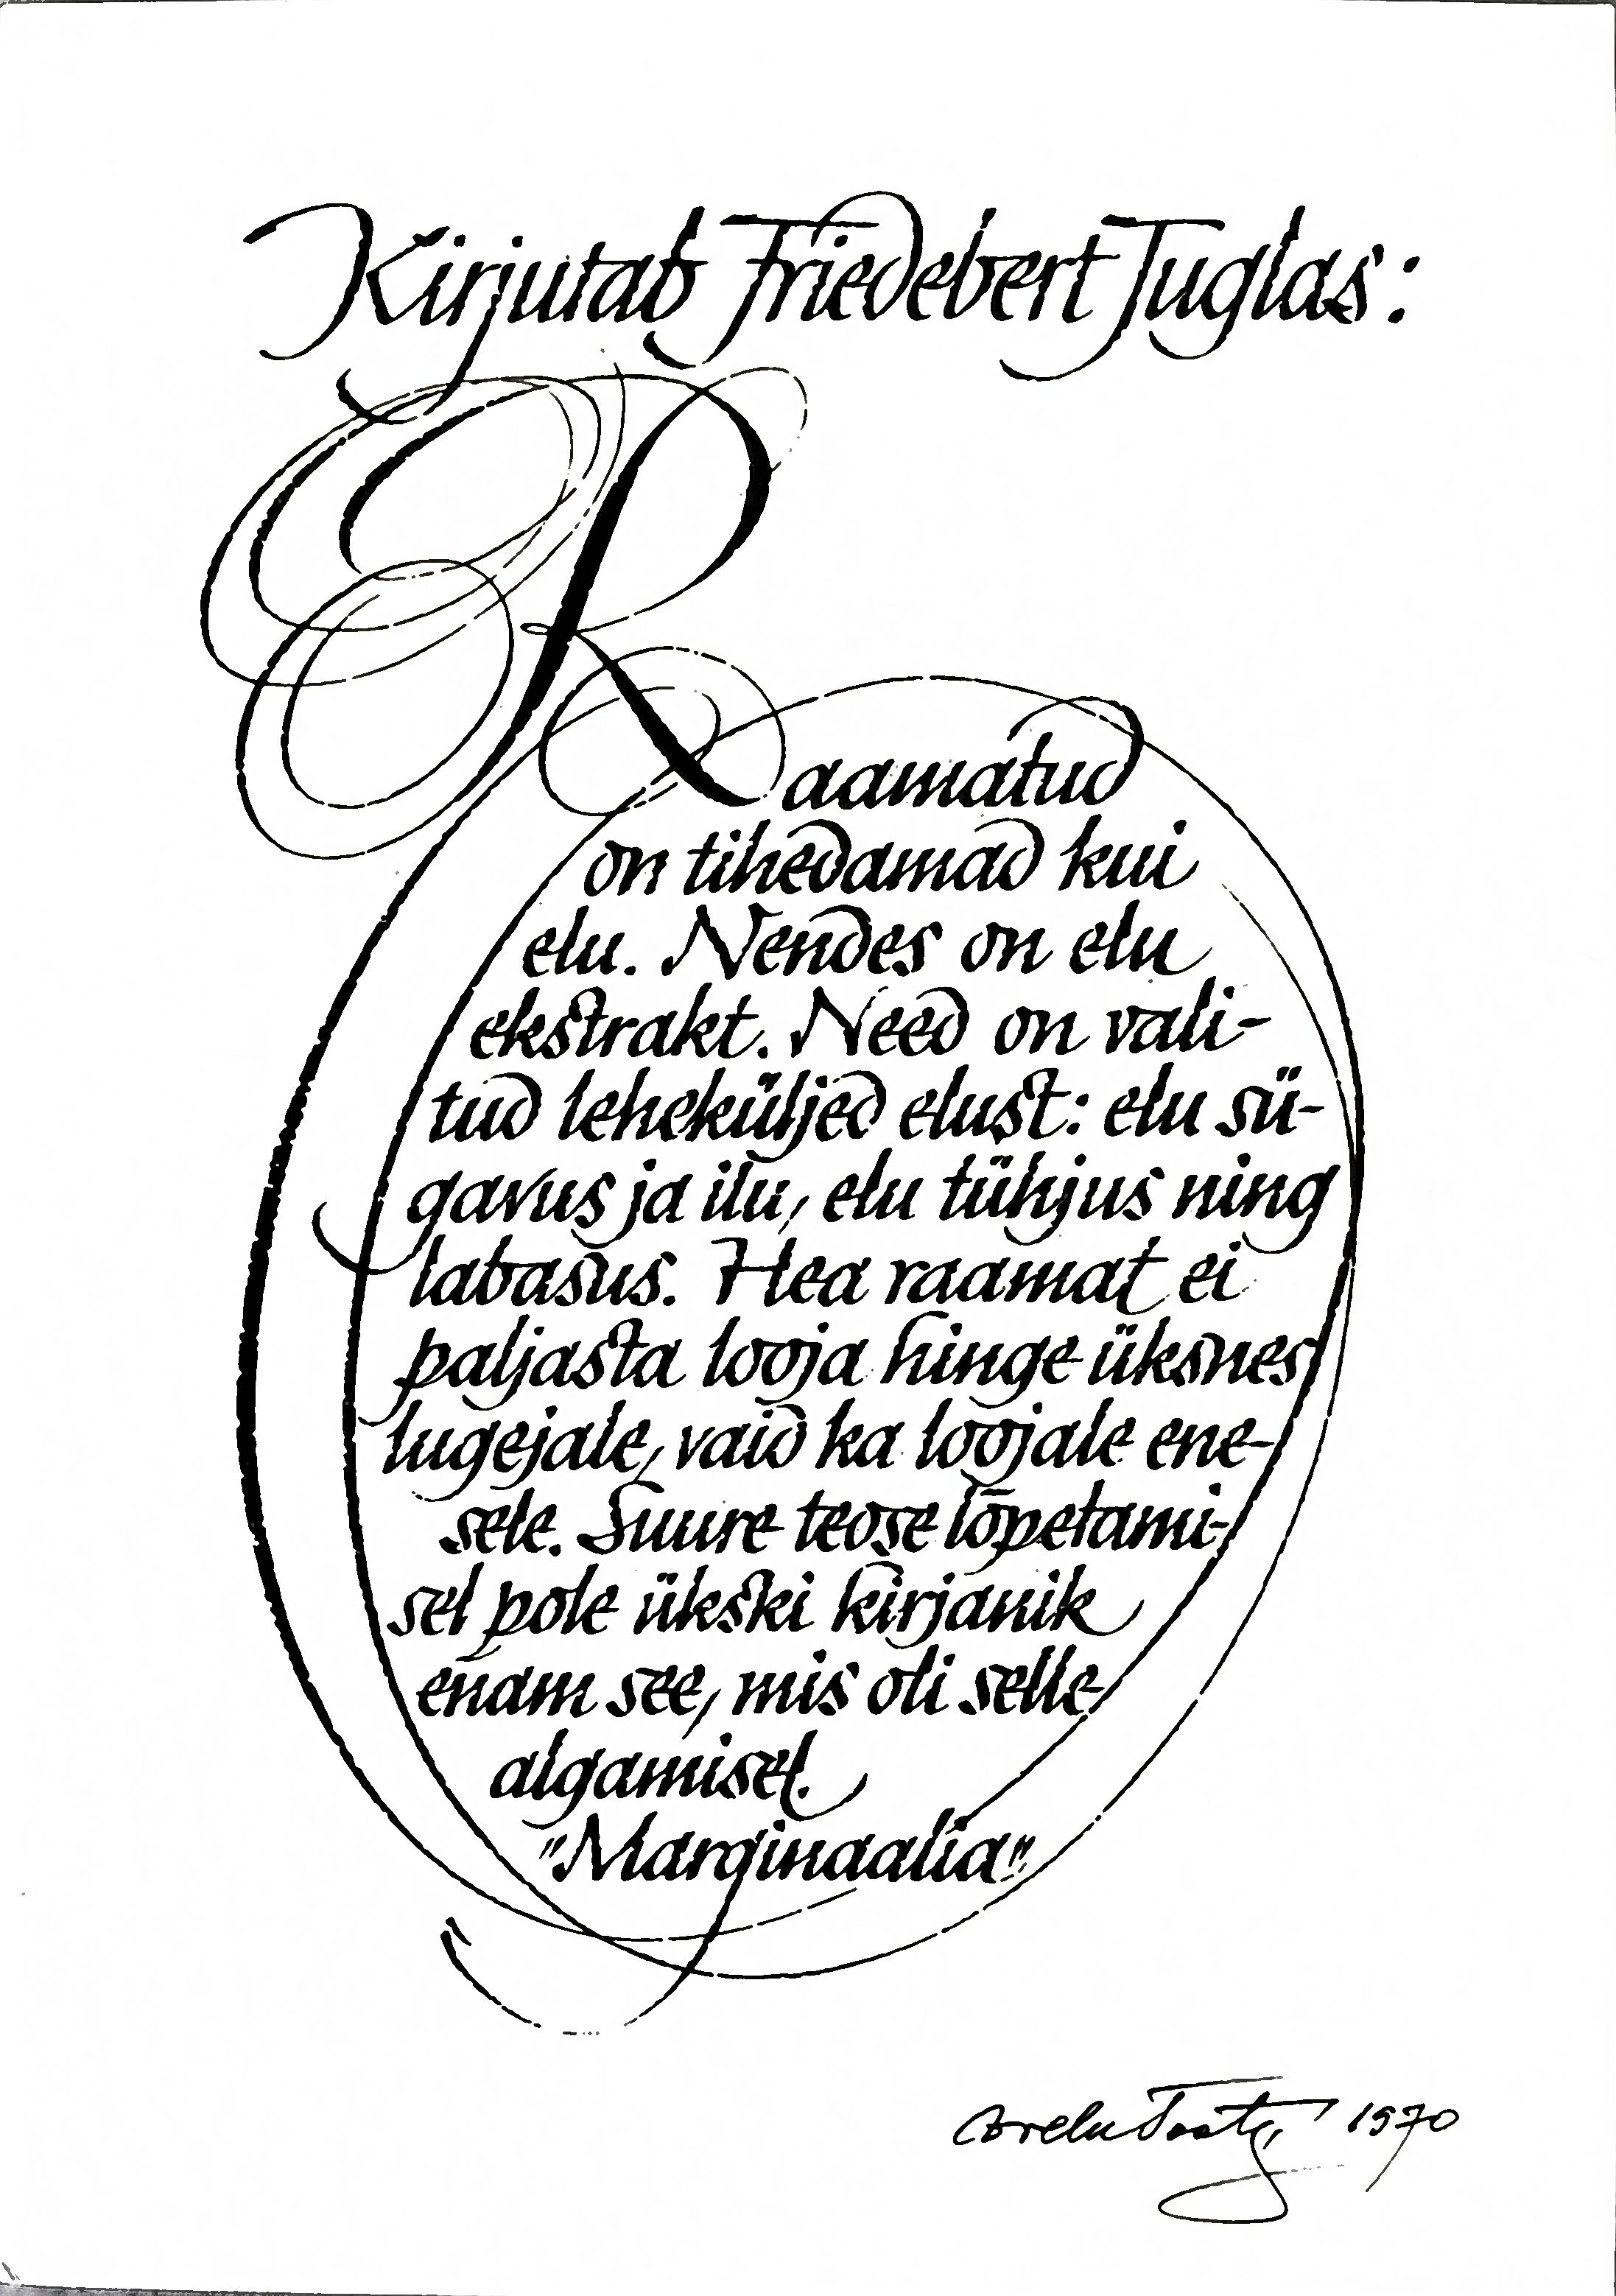 Kirjutab Friedebert Tuglas:
Raamatud
on tihedamad kui
elu. Nendes on elu
ekstrakt. Need on vali-
tud leheküljed elust: elu sü-
gavus ja ilu, elu tühjus ning
labasus. Hea raamat ei
paljasta looja hinge üksnes
lugejale, vaid ka loojale ene-
sele. Suure teose lõpetami-
sel pole ükski kirjanik
enam see, mis oli selle
algamisel.
"Marginaalia"
1970